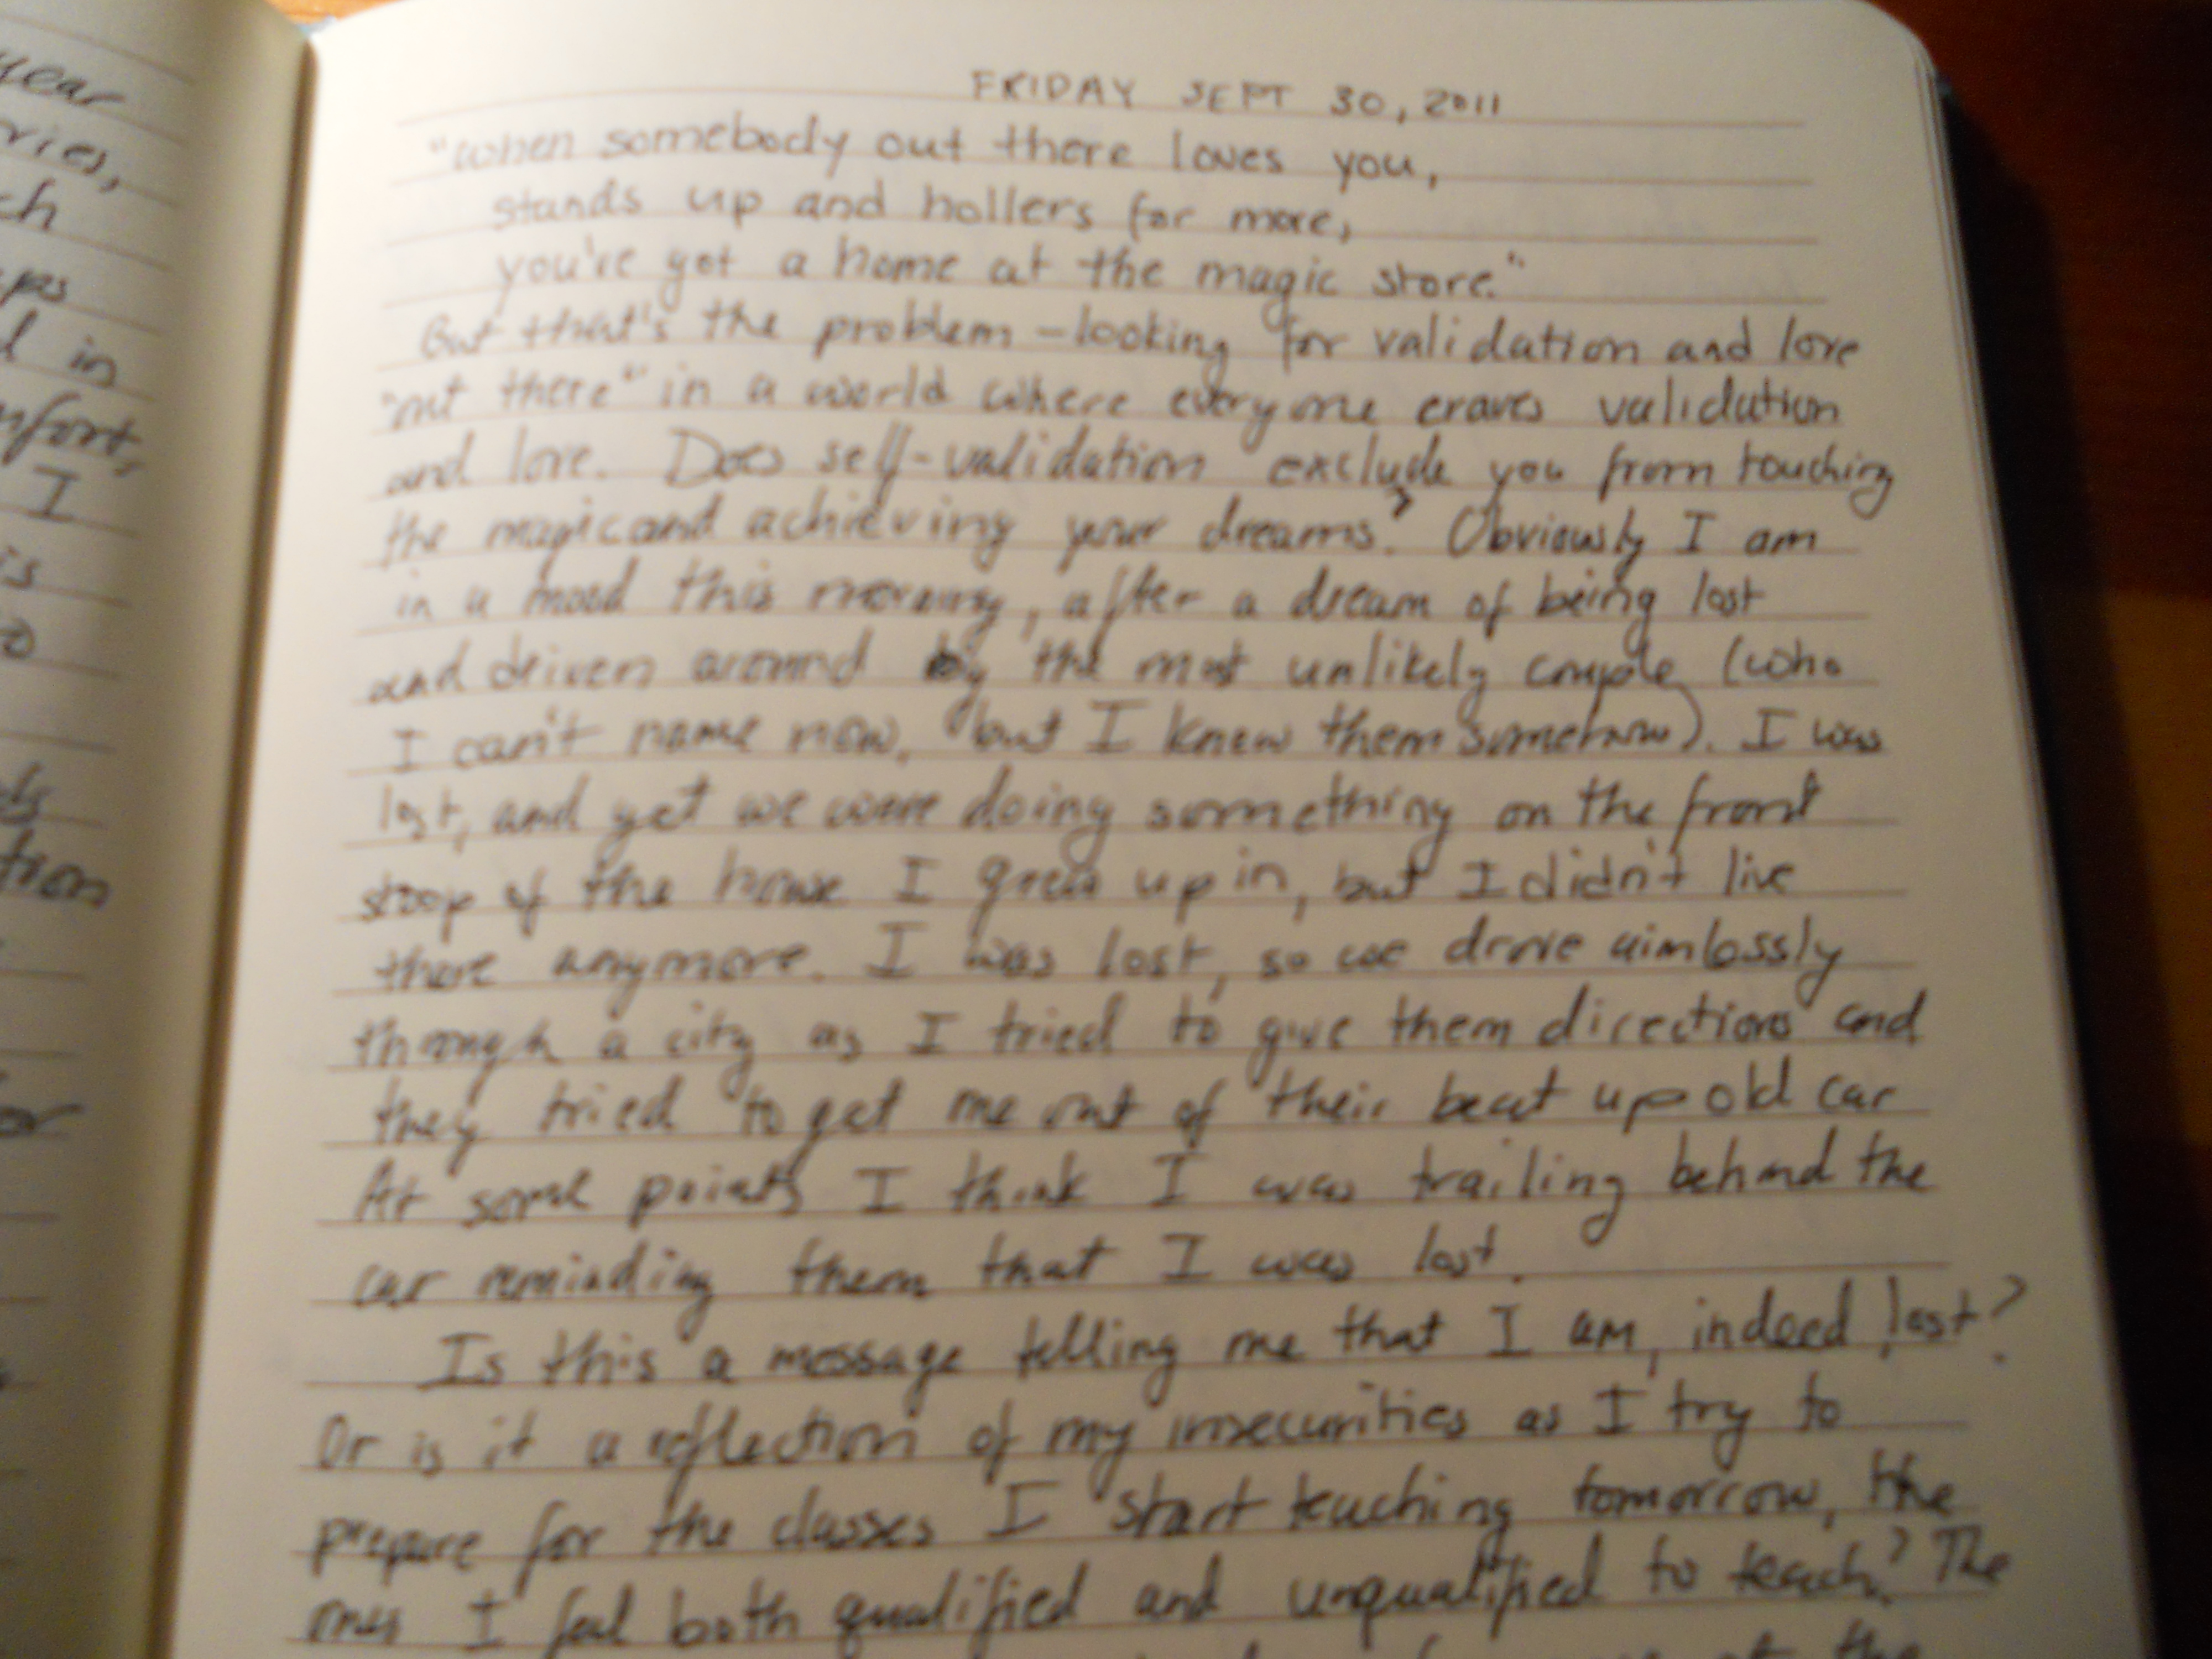 year
ries,
ch
ps
d in
mfort,
I
is
to
ds
tion
or
FRIDAY SEPT 30, 2011
"When somebody out there loves you,
stands up and hollers for more,
you've got a home at the magic store."
But that's the problem – looking for validation and love
"out there" in a world where everyone craves validation
and love. Does self-validation exclude you from touching
the magic and achieving your dreams? Obviously I am
in a mood this morning, after a dream of being lost
and driven around by the most unlikely couple (who
I can't name now, but I knew them somehow). I was
lost, and yet we were doing something on the front
stoop of the house I grew up in, but I didn't live
there anymore. I was lost, so we drove aimlessly
through a city as I tried to give them directions and
they tried to get me out of their beat up old car
At some points I think I was trailing behind the
car reminding them that I was lost.
Is this a message telling me that I am, indeed, lost?
Or is it a reflection of my insecurities as I try to
prepare for the classes I start teaching tomorrow, the
ones I feel both qualified and unqualified to teach? The
the